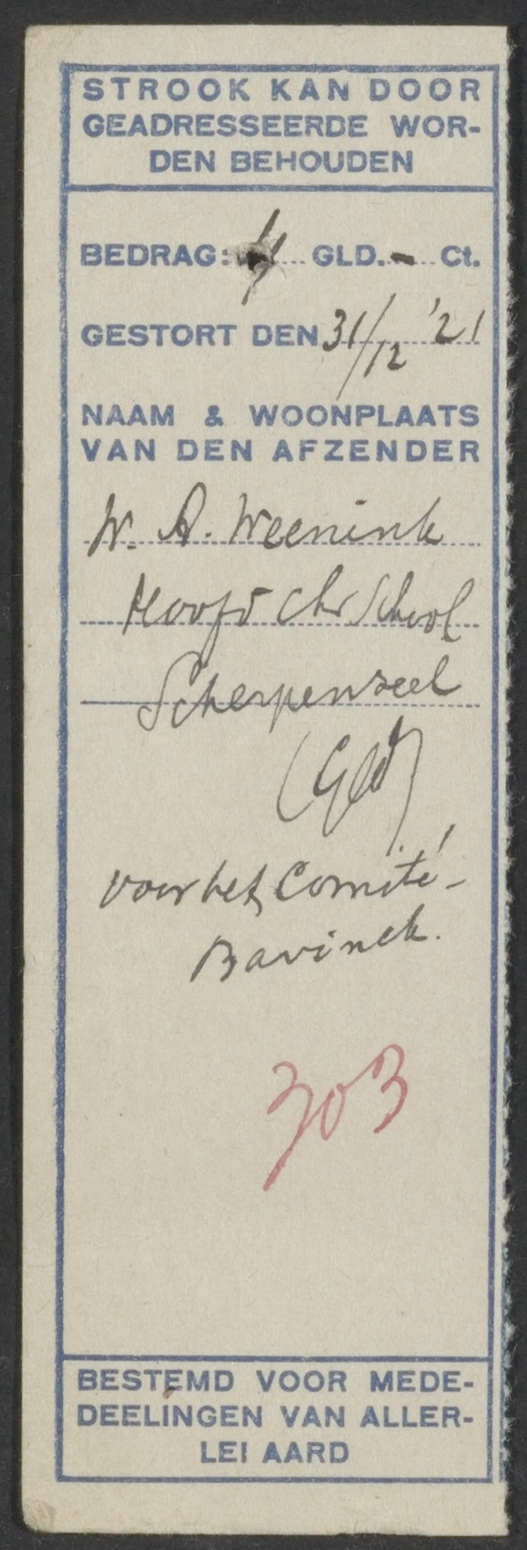 STROOK KAN DOOR
GEADRESSEERDE WOR-
DEN BEHOUDEN
BEDRAG: GLD. - Ct.
GESTORT DEN 31/12 '21
NAAM & WOONPLAATS
VAN DEN AFZENDER
W. A. Weenink
Hoofd Chr School
Scherpenzeel
(Gld)
voor het Comité-
Bavinck.
303
BESTEMD VOOR MEDE-
DEELINGEN VAN ALLER-
LEI AARD